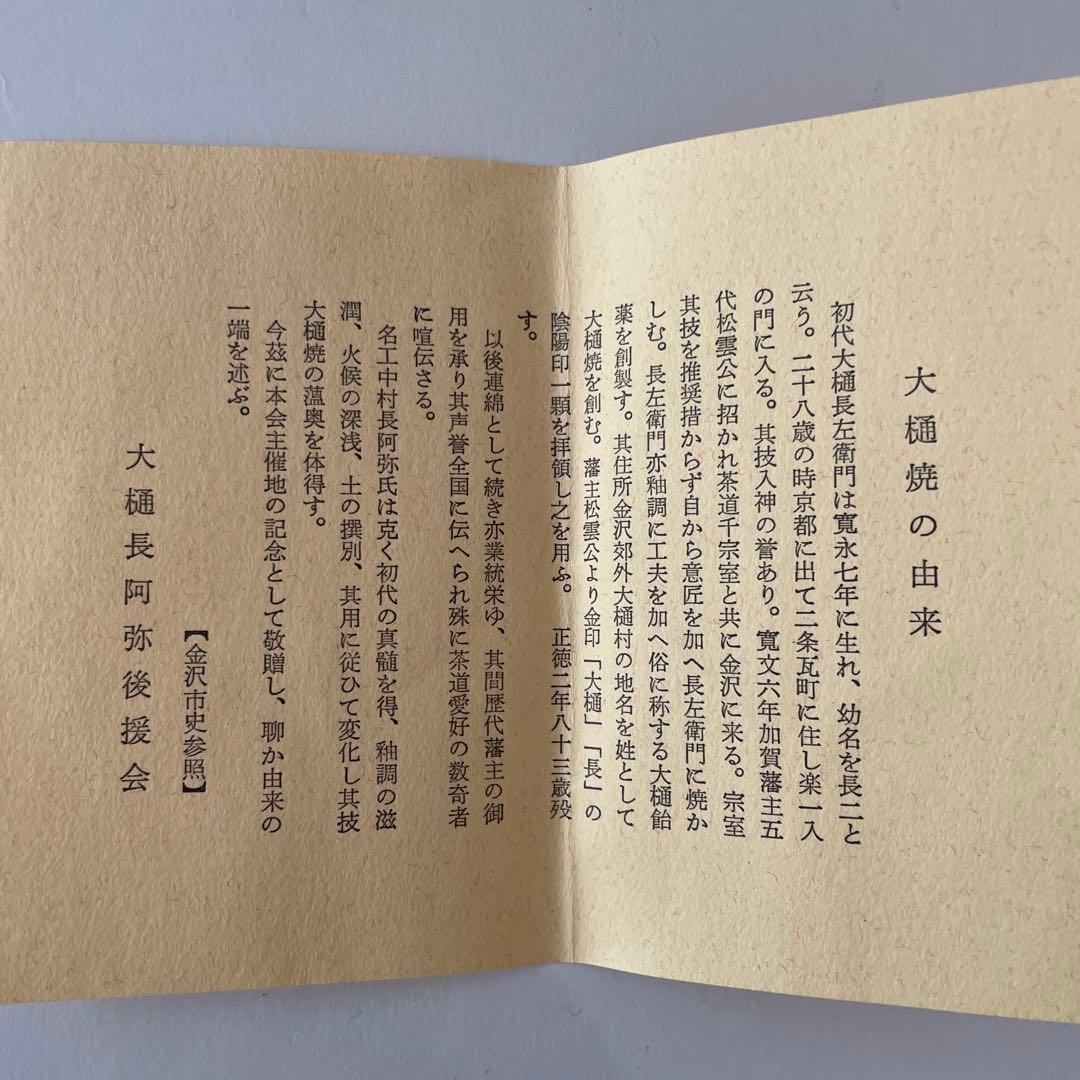 大樋焼の由来
初代大樋長左衛門は寛永七年に生れ、幼名を長二と
云う。二十八歳の時京都に出て二条瓦町に住し楽一入
の門に入る。其技入神の誉あり。寛文六年加賀藩主五
代松雲公に招かれ茶道千宗室と共に金沢に来る。宗室
其技を推奨措からず自から意匠を加へ長左衛門に焼か
しむ。長左衛門亦釉調に工夫を加へ俗に称する大樋飴
薬を創製す。其住所金沢郊外大樋村の地名を姓として
大樋焼を創む。藩主松雲公より金印「大樋」「長」の
陰陽印一顆を拝領し之を用ふ。　正徳二年八十三歳歿
す。
以後連綿として続き亦業統栄ゆ、其間歴代藩主の御
用を承り其声誉全国に伝へられ殊に茶道愛好の数奇者
に喧伝さる。
名工中村長阿弥氏は克く初代の真髄を得、釉調の滋
潤、火候の深浅、土の撰別、其用に従ひて変化し其技
大樋焼の薀奥を体得す。
今茲に本会主催地の記念として敬贈し、聊か由来の
一端を述ぶ。
【金沢市史参照】
大樋長阿弥後援会